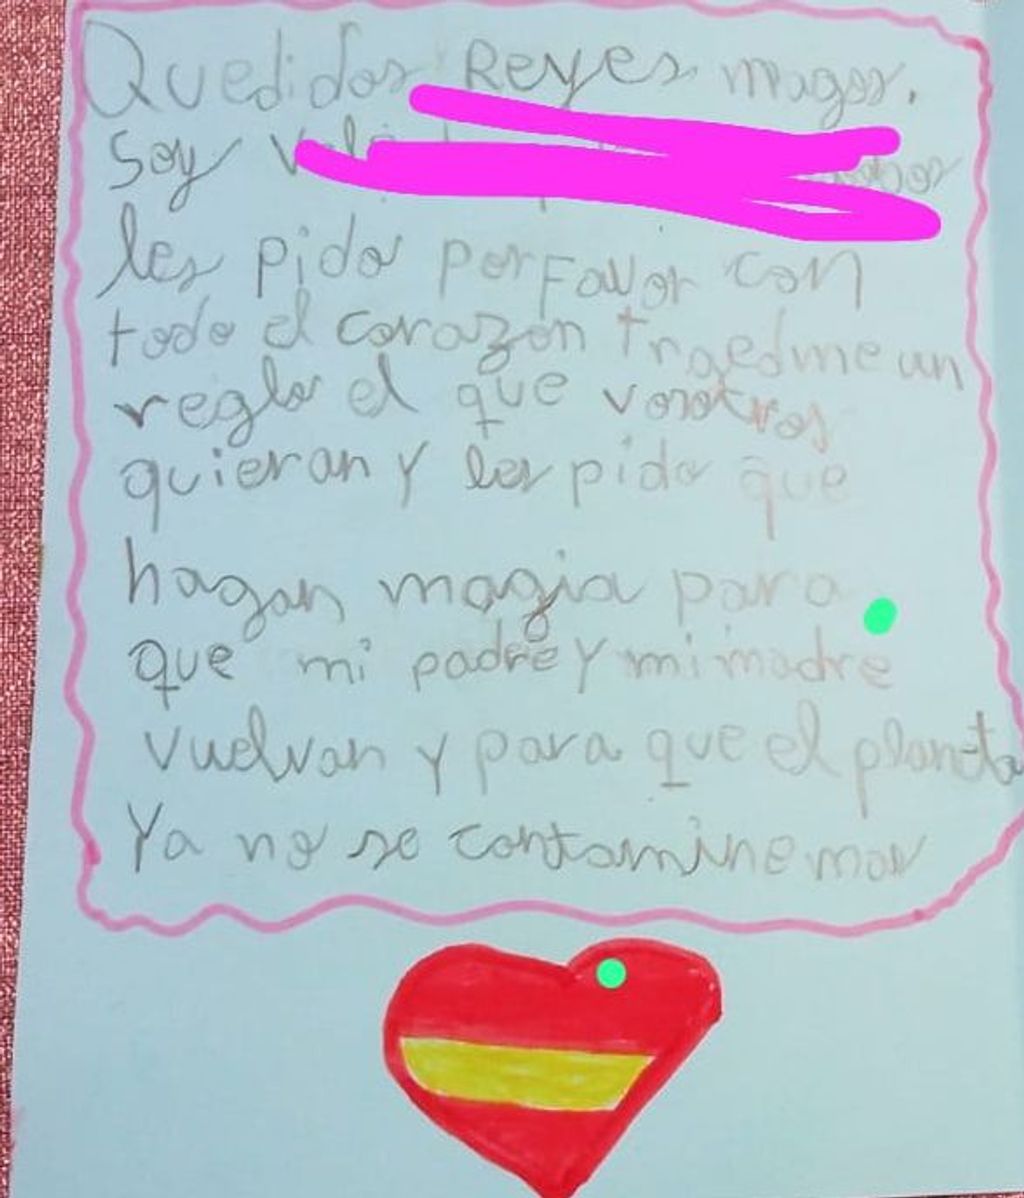 Quedidos Reyes magos.
Soy
les pido porfavor con
todo el corazon traedme un
reglo el que vosotros
quieran y les pido que
hagan magia para
que mi padre y mi madre
vuelvan y para que el planeta
Ya no se contamine mas